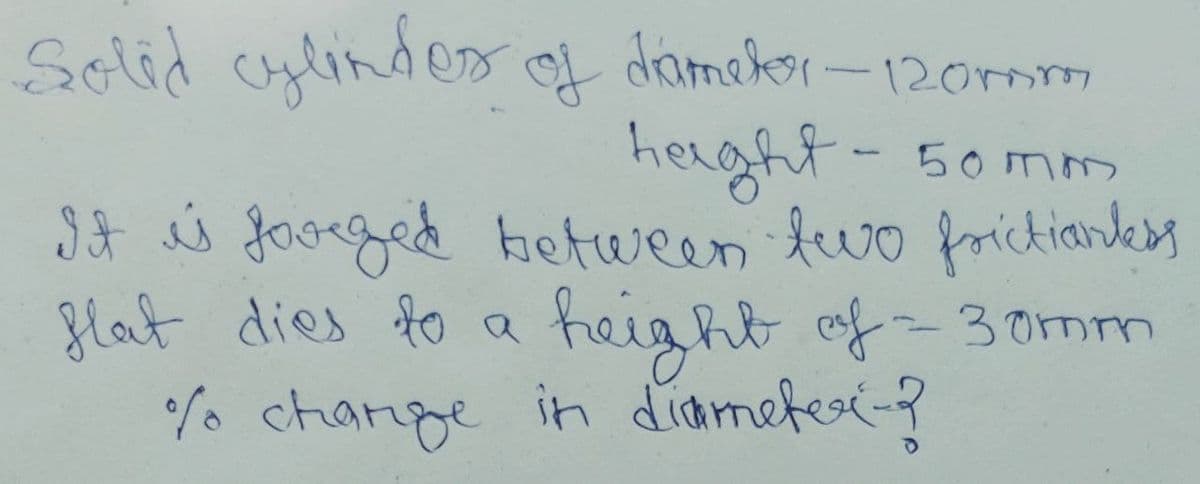 Solid cylinder of diameter - 120mm
height - 50 mm
It is forged between two frictionless
flat dies to a height of - 30mm
% change in diameter-?